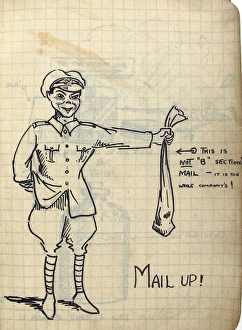 THIS IS
NOT "B" SECTION
MAIL - IT IS THE
WHOLE COMPANY'S!
MAIL UP!